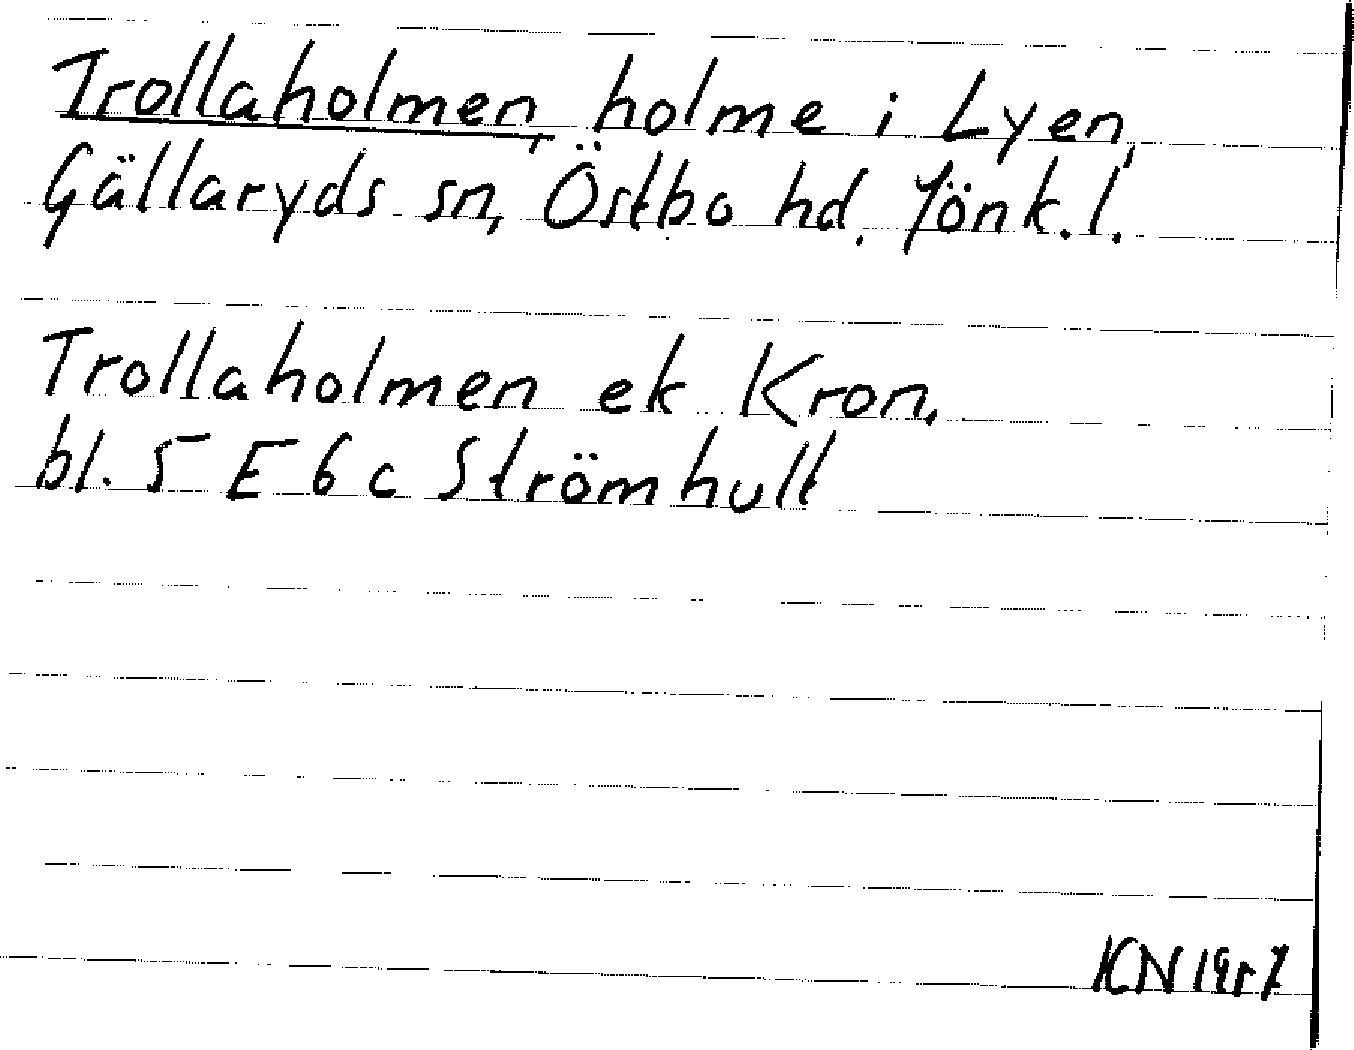 Trollaholmen, holme i Lyen,
Gällaryds sn, Östbo hd. Jönk.l.
Trollaholmen ek Kron.
bl. 5 E 6 c Strömhult
KN